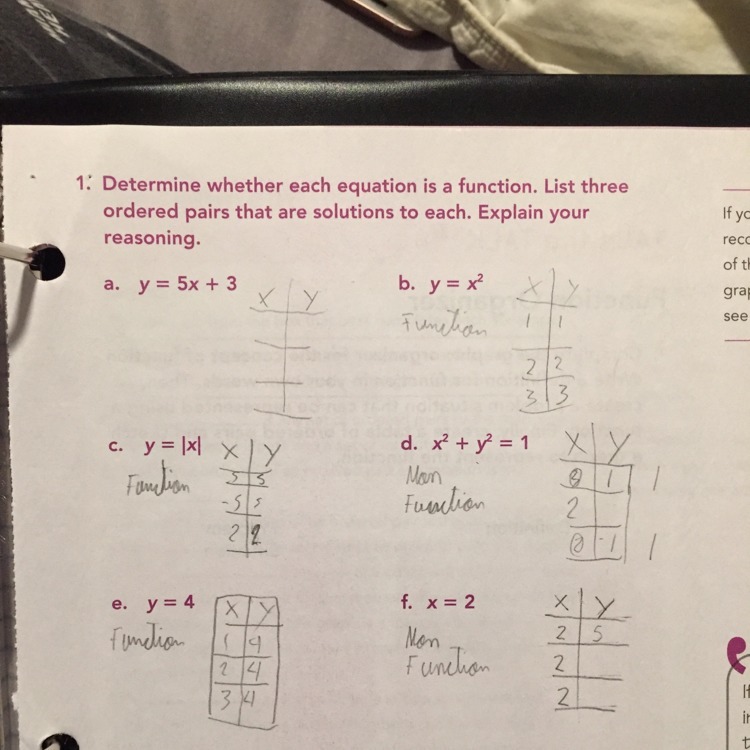 1. Determine whether each equation is a function. List three
ordered pairs that are solutions to each. Explain your
reasoning.
a. y = 5x + 3
X Y
b. y = x²
Function
X Y
1 1
2 2
3 3
c. y = |x|
Function
X Y
5 5
-5 5
2 2
d. x² + y² = 1
Non
Function
X Y
0 1 1
2
0 -1 1
e. y = 4
Function
X Y
1 4
2 4
3 4
f. x = 2
Non
Function
X Y
2 5
2
2
If
of
see
If